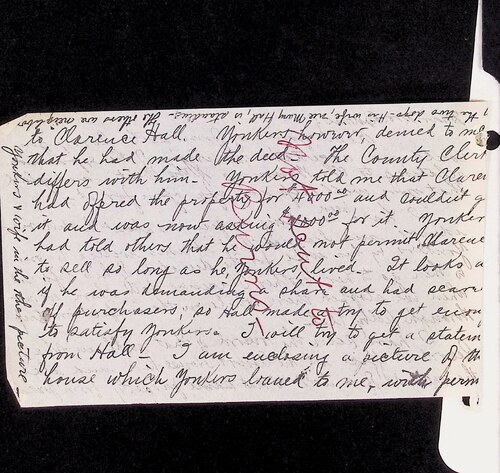 the two dogs - His wife, née Mary Hall, is standing - The others are neighbor
to Clarence Hall. Yonkers, however, denied to me
that he had made the deed. The County Cler
differs with him - Yonkers told me that Claren
had offered the property for $4800.00 and couldn't g
it, and was now asking $4500.00 for it. Yonker
had told others that he would not permit Clarenc
to sell so long as he, Yonkers, lived. It looks a
if he was demanding a share and had scare
off purchasers; so Hall made a try to get enou
to satisfy Yonkers. I will try to get a statem
from Hall - I am enclosing a picture of th
house which Yonkers loaned to me, with perm
Yonkers & wife in the other picture -